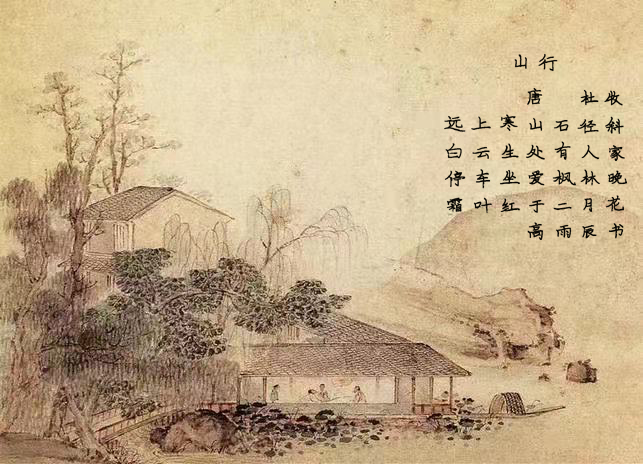 山行
唐 杜牧
远上寒山石径斜
白云生处有人家
停车坐爱枫林晚
霜叶红于二月花
高雨辰书